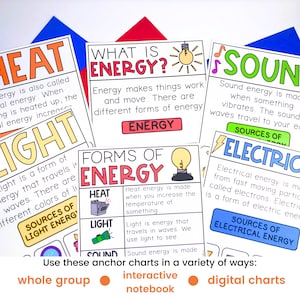 HEAT
energy is also called
energy. When
is heated up, the
energy increases
LIGHT
Light is a form of
energy that travels in
SOURCES OF
LIGHT ENERGY
WHAT IS
ENERGY?
Energy makes things work
and move. There are
different forms of energy.
ENERGY
FORMS OF
ENERGY
HEAT
Heat energy is made
when you increase the
temperature of
something.
LIGHT
Light is energy that
travels in waves. We
use light to see.
SOUND
Sound energy is made
SOUN
Sound energy is made
when something
vibrates. The sound
waves travel to your
SOURCES OF
ELECTRIC
Electrical energy is
from fast moving
called electrons. Elect
is a form of electric ener
SOURCES OF
ELECTRICAL ENERGY
Use these anchor charts in a variety of ways:
whole group
interactive
notebook
digital charts